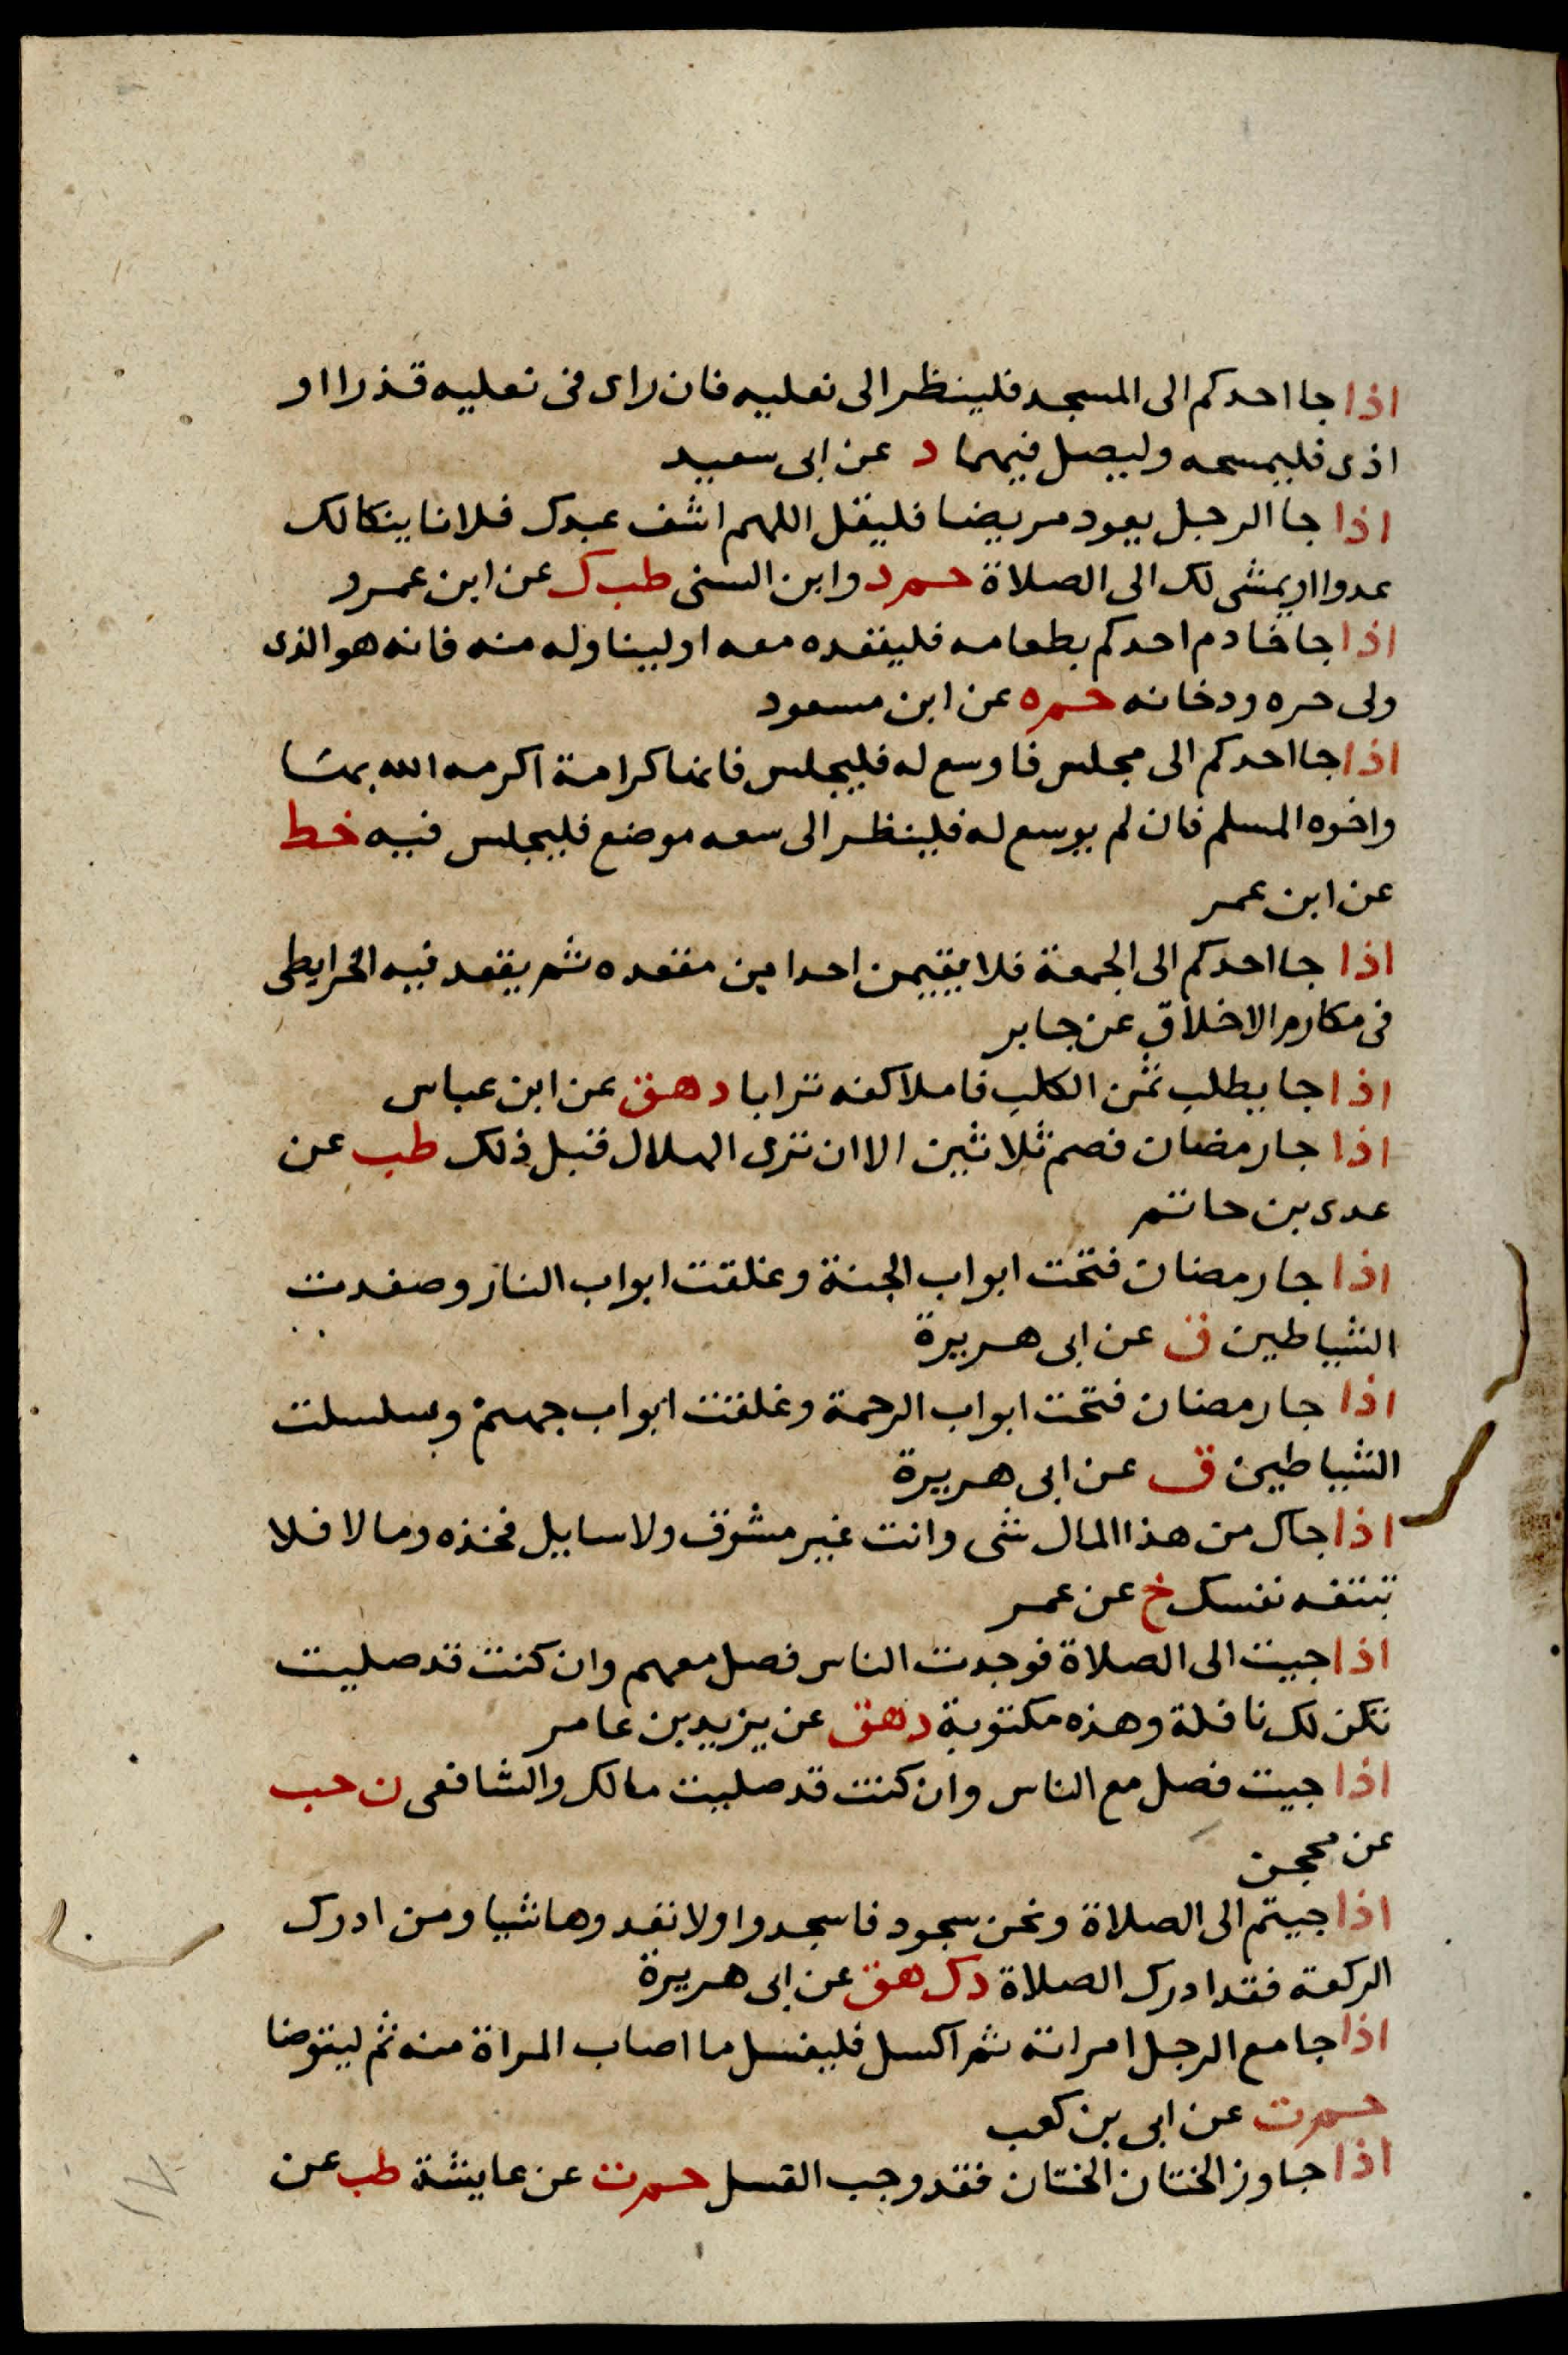 اذا جا احدكم الى المسجد فلينظر الى نعليه فان راى فى نعليه قذرا او
اذى فليمسحه وليصل فيهما د عن ابى سعيد
اذا جا الرجل يعود مريضا فليقل اللهم اشف عبدك فلانا ينكا لك
عدوا او يمشى لك الى الصلاة حم د وابن السنى طب ك عن ابن عمرو
اذا جا خادم احدكم بطعامه فليقعده معه او ليناوله منه فانه هو الذى
ولى حره ودخانه حم ه عن ابن مسعود
اذا جا احدكم الى مجلس فاوسع له فليجلس فانها كرامة اكرمه الله بها
واخوه المسلم فان لم يوسع له فلينظر الى سعه موضع فليجلس فيه خط
عن ابن عمر
اذا جا احدكم الى الجمعة فلا يقيمن احدا من مقعده ثم يقعد فيه الخرايطى
فى مكارم الاخلاق عن جابر
اذا جا يطلب ثمن الكلب فاملا كفه ترابا د هق عن ابن عباس
اذا جا رمضان فصم ثلاثين الا ان ترى الهلال قبل ذلك طب عن
عدى بن حاتم
اذا جا رمضان فتحت ابواب الجنة وغلقت ابواب النار وصفدت
الشياطين ن عن ابى هريرة
اذا جا رمضان فتحت ابواب الرحمة وغلقت ابواب جهنم وسلسلت
الشياطين ق عن ابى هريرة
اذا جاك من هذا المال شى وانت غير مشرف ولا سايل فخذه وما لا فلا
تتبعه نفسك خ عن عمر
اذا جيت الى الصلاة فوجدت الناس فصل معهم وان كنت قد صليت
تكن لك نافلة وهذه مكتوبة د هق عن يزيد بن عامر
اذا جيت فصل مع الناس وان كنت قد صليت مالك والشافعى ن حب
عن محجن
اذا جيتم الى الصلاة ونحن سجود فاسجدوا ولا تعدوها شيا ومن ادرك
الركعة فقد ادرك الصلاة د ك هق عن ابى هريرة
اذا جامع الرجل امراته ثم اكسل فليغسل ما اصاب المراة منه ثم ليتوضا
حم ت عن ابى بن كعب
اذا جاوز الختان الختان فقد وجب الغسل حم ت عن عايشة طب عن